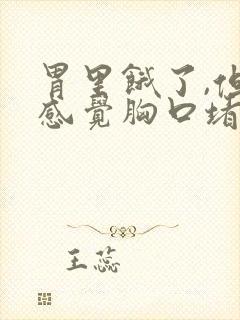 胃里餓了,但
感覺胸口堵
王蕊